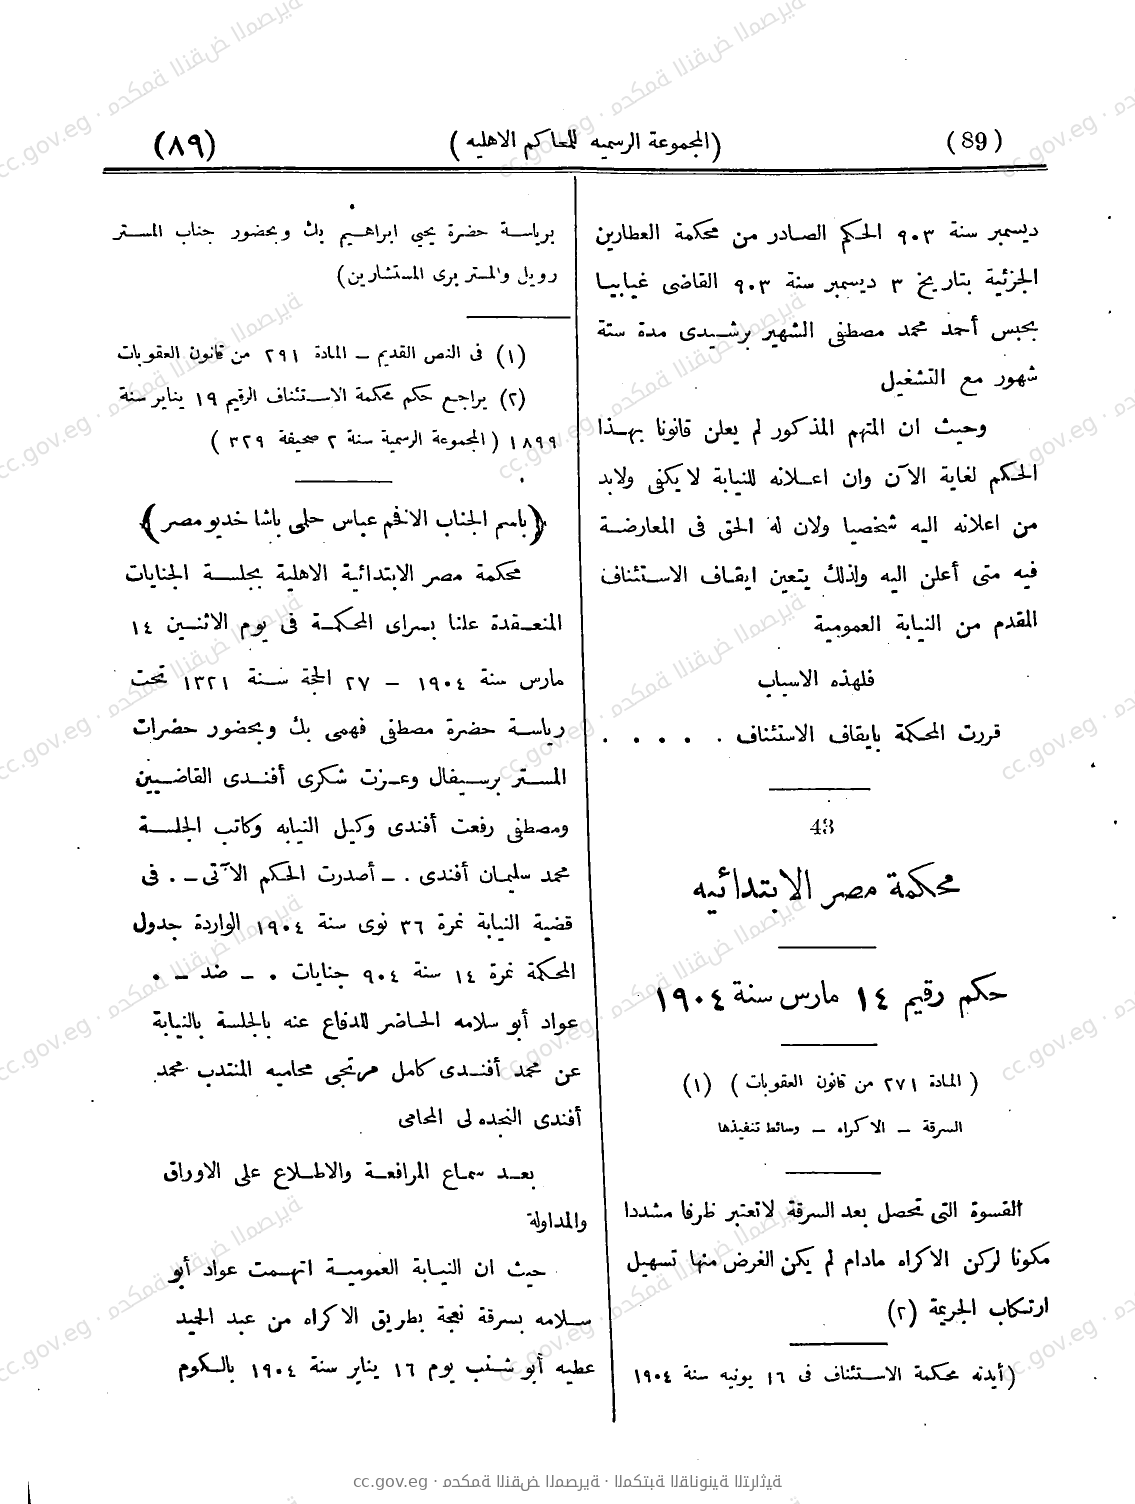 (89)
(المجموعة الرسميه للمحاكم الاهليه)
(٨٩)
ديسمبر سنة ٩٠٣ الحكم الصادر من محكمة العطارين
الجزئية بتاريخ ٣ ديسمبر سنة ٩٠٣ القاضى غيابيا
بحبس أحمد محمد مصطفى الشهير برشيدى مدة ستة
شهور مع التشغيل
وحيث ان المتهم المذكور لم يعلن قانونا بهذا
الحكم لغاية الآن وان اعلانه للنيابة لا يكفى ولابد
من اعلانه اليه شخصيا ولان له الحق فى المعارضة
فيه متى أعلن اليه ولذلك يتعين ايقاف الاستئناف
المقدم من النيابة العمومية
فلهذه الاسباب
قررت المحكمة بايقاف الاستئناف . . . . .
43
محكمة مصر الابتدائيه
حكم رقيم ١٤ مارس سنة ١٩٠٤
( المادة ٢٧١ من قانون العقوبات ) (١)
السرقة – الاكراه – وسائط تنفيذها
القسوة التى تحصل بعد السرقة لاتعتبر ظرفا مشددا
مكونا لركن الاكراه مادام لم يكن الغرض منها تسهيل
ارتكاب الجريمة (٢)
(أيدته محكمة الاستئناف فى ١٦ يونيه سنة ١٩٠٤
برياسة حضرة يحيى ابراهيم بك وبحضور جناب المستر
رويل والمستر برى المستشارين)
(١) فى النص القديم – المادة ٢٩١ من قانون العقوبات
(٢) يراجع حكم محكمة الاستئناف الرقيم ١٩ يناير سنة
١٨٩٩ (المجموعة الرسمية سنة ٢ صحيفة ٣٢٩)
(باسم الجناب الافخم عباس حلمى باشا خديو مصر)
محكمة مصر الابتدائية الاهلية بجلسة الجنايات
المنعقدة علنا بسراى المحكمة فى يوم الاثنين ١٤
مارس سنة ١٩٠٤ – ٢٧ الحجة سنة ١٣٢١ تحت
رياسة حضرة مصطفى فهمى بك وبحضور حضرات
المستر برسيفال وعزت شكرى أفندى القاضيين
ومصطفى رفعت أفندى وكيل النيابه وكاتب الجلسة
محمد سليمان أفندى . – أصدرت الحكم الآتى – . فى
قضية النيابة نمرة ٣٦ نوى سنة ١٩٠٤ الواردة جدول
المحكمة نمرة ١٤ سنة ٩٠٤ جنايات . – ضد – .
عواد أبو سلامه الحاضر للدفاع عنه بالجلسة بالنيابة
عن محمد أفندى كامل مرتجى محاميه المنتدب محمد
أفندى النجده لى المحامى
بعد سماع المرافعة والاطلاع على الاوراق
والمداولة
حيث ان النيابة العمومية اتهمت عواد أبو
سلامه بسرقة نعجة بطريق الاكراه من عبد الجيد
عطيه أبو شنب يوم ١٦ يناير سنة ١٩٠٤ بالكوم
cc.gov.eg · محكمة النقض المصرية · المكتبة القانونية التراثية